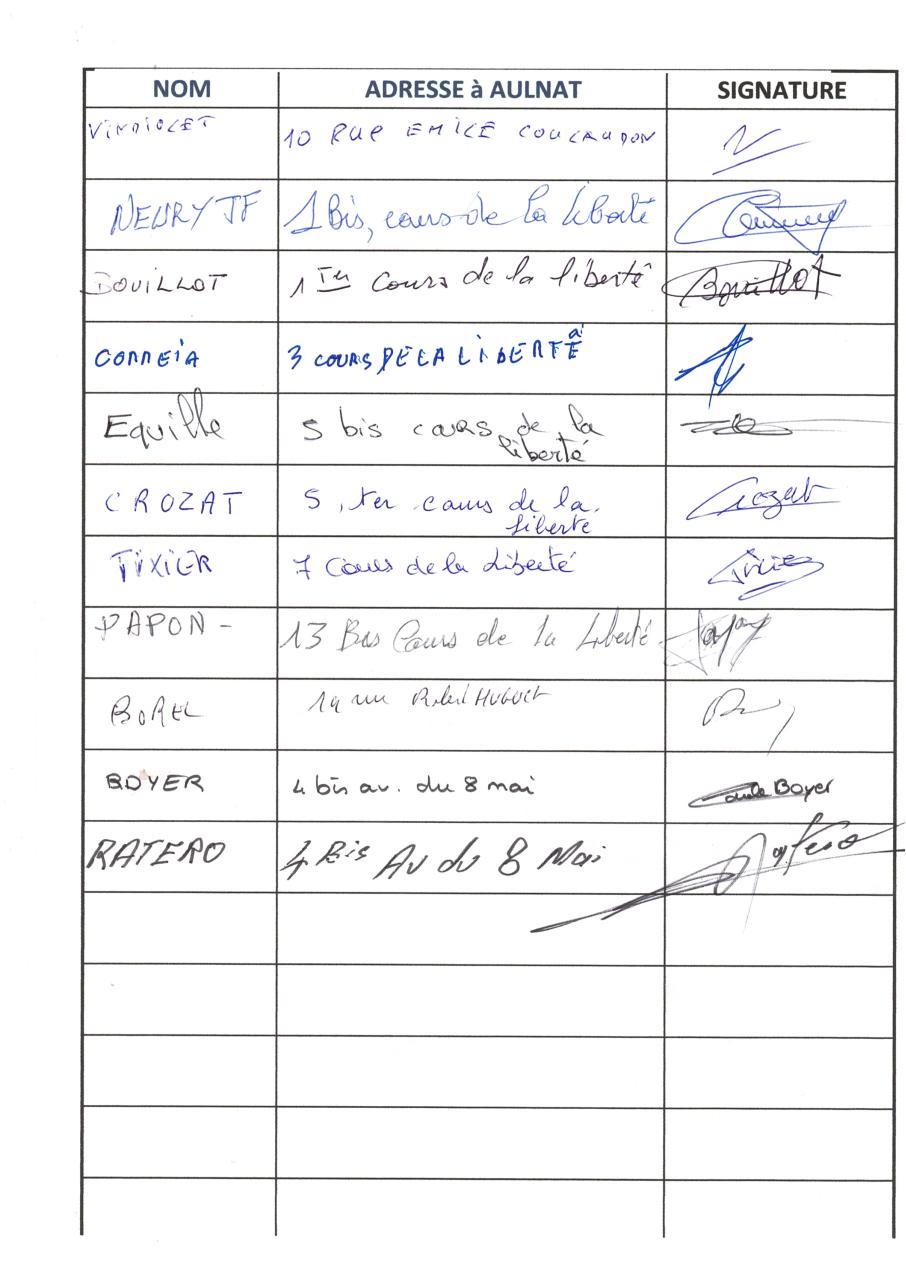 NOM ADRESSE à AULNAT SIGNATURE
VINDIOLET 10 RUE EMILE COULAUDON
NEURY JF 1 Bis, cours de la liberté
BOUILLOT 1 Ter cours de la liberté Bouillot
CORREIA 3 COURS DE LA LIBERTÉ
Equille 5 bis cours de la
liberté
CROZAT 5, ter cours de la Crozat
liberté
TIXIER 7 Cours de la Liberté
PAPON - 13 Bis Cours de la Liberté
BOREL rue Robert HUGUET
BOYER 4 bis av. du 8 mai Boyer
RATERO 4 Bis Av du 8 Mai Ratero